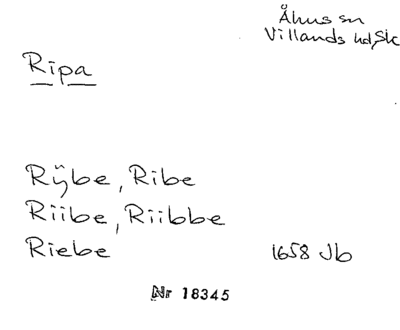 Åhus sn
Villands hd, Sk
Ripa
Rÿbe, Ribe
Riibe, Riibbe
Riebe 1658 Jb
Nr 18345